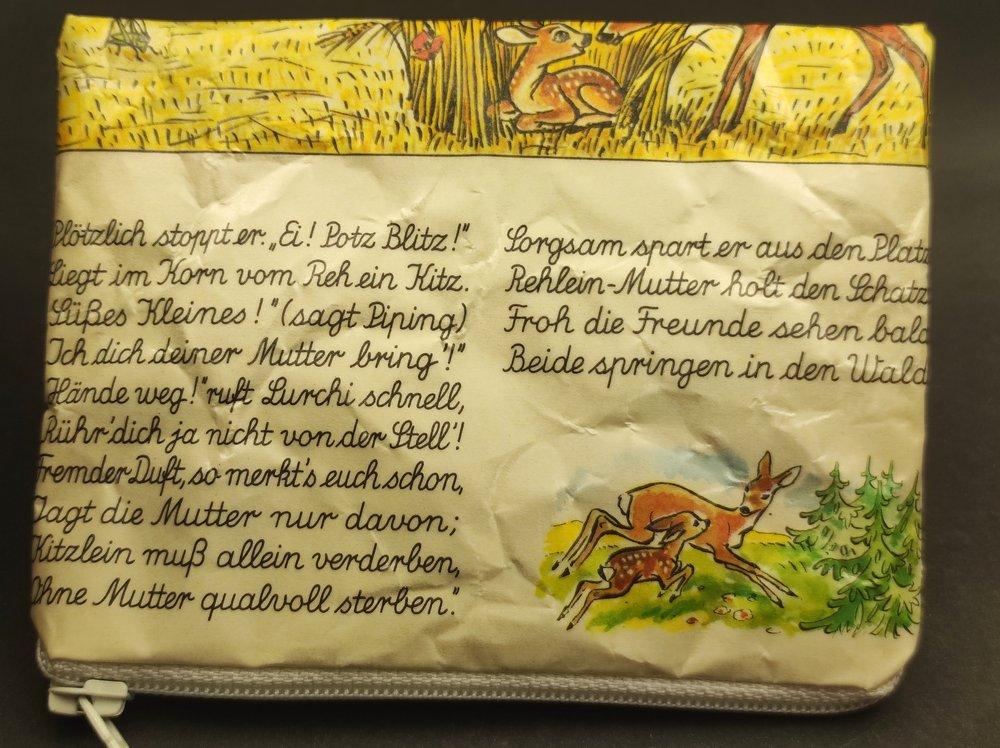 Plötzlich stoppt er. „Ei! Potz Blitz!"
Liegt im Korn vom Reh ein Kitz.
Süßes Kleines!" (sagt Piping)
Ich dich deiner Mutter bring'!"
Hände weg!" ruft Lurchi schnell,
Rühr' dich ja nicht von der Stell'!
Fremder Duft, so merkt's euch schon,
Jagt die Mutter nur davon;
Kitzlein muß allein verderben,
Ohne Mutter qualvoll sterben."
Sorgsam spart er aus den Platz
Rehlein-Mutter holt den Schatz
Froh die Freunde sehen bald
Beide springen in den Wald